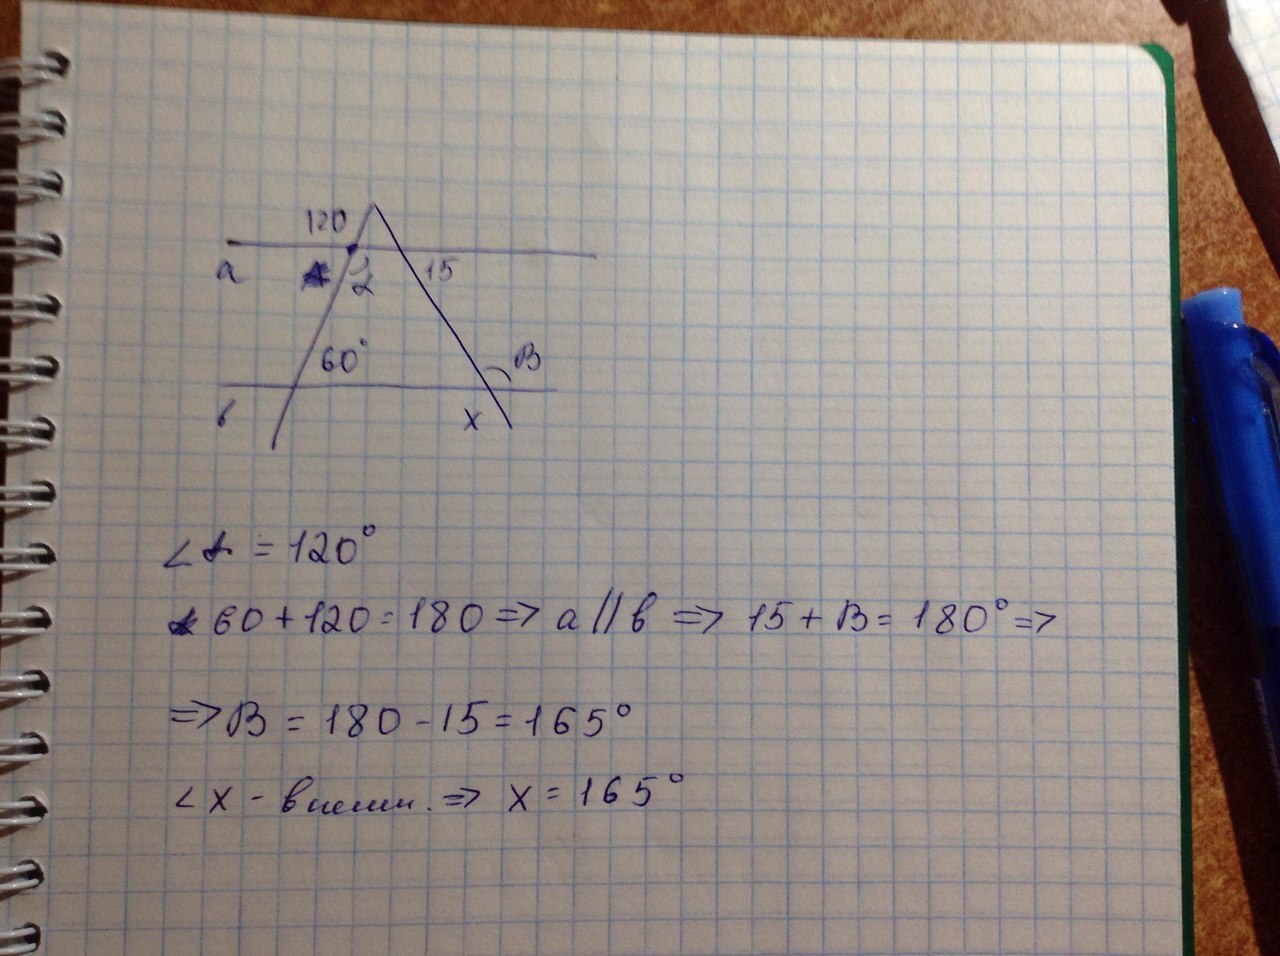 120
a
α
15
60°
B
в
x
∠α = 120°
60 + 120 = 180 => a // в => 15 + B = 180° =>
=> B = 180 - 15 = 165°
∠x - внешн. => x = 165°